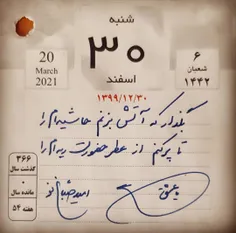 شنبه
20
March
2021
۳۰
اسفند
۶
شعبان
۱۴۴۲
۱۳۹۹/۱۲/۳۰
بگذار که آتش بزنم حاشیه‌ام را
تا پر کنم از عطر حضورت ریه‌ام را
۳۶۶
گذشت سال
۰
مانده سال
هفته ۵۴
امید صباغ نو